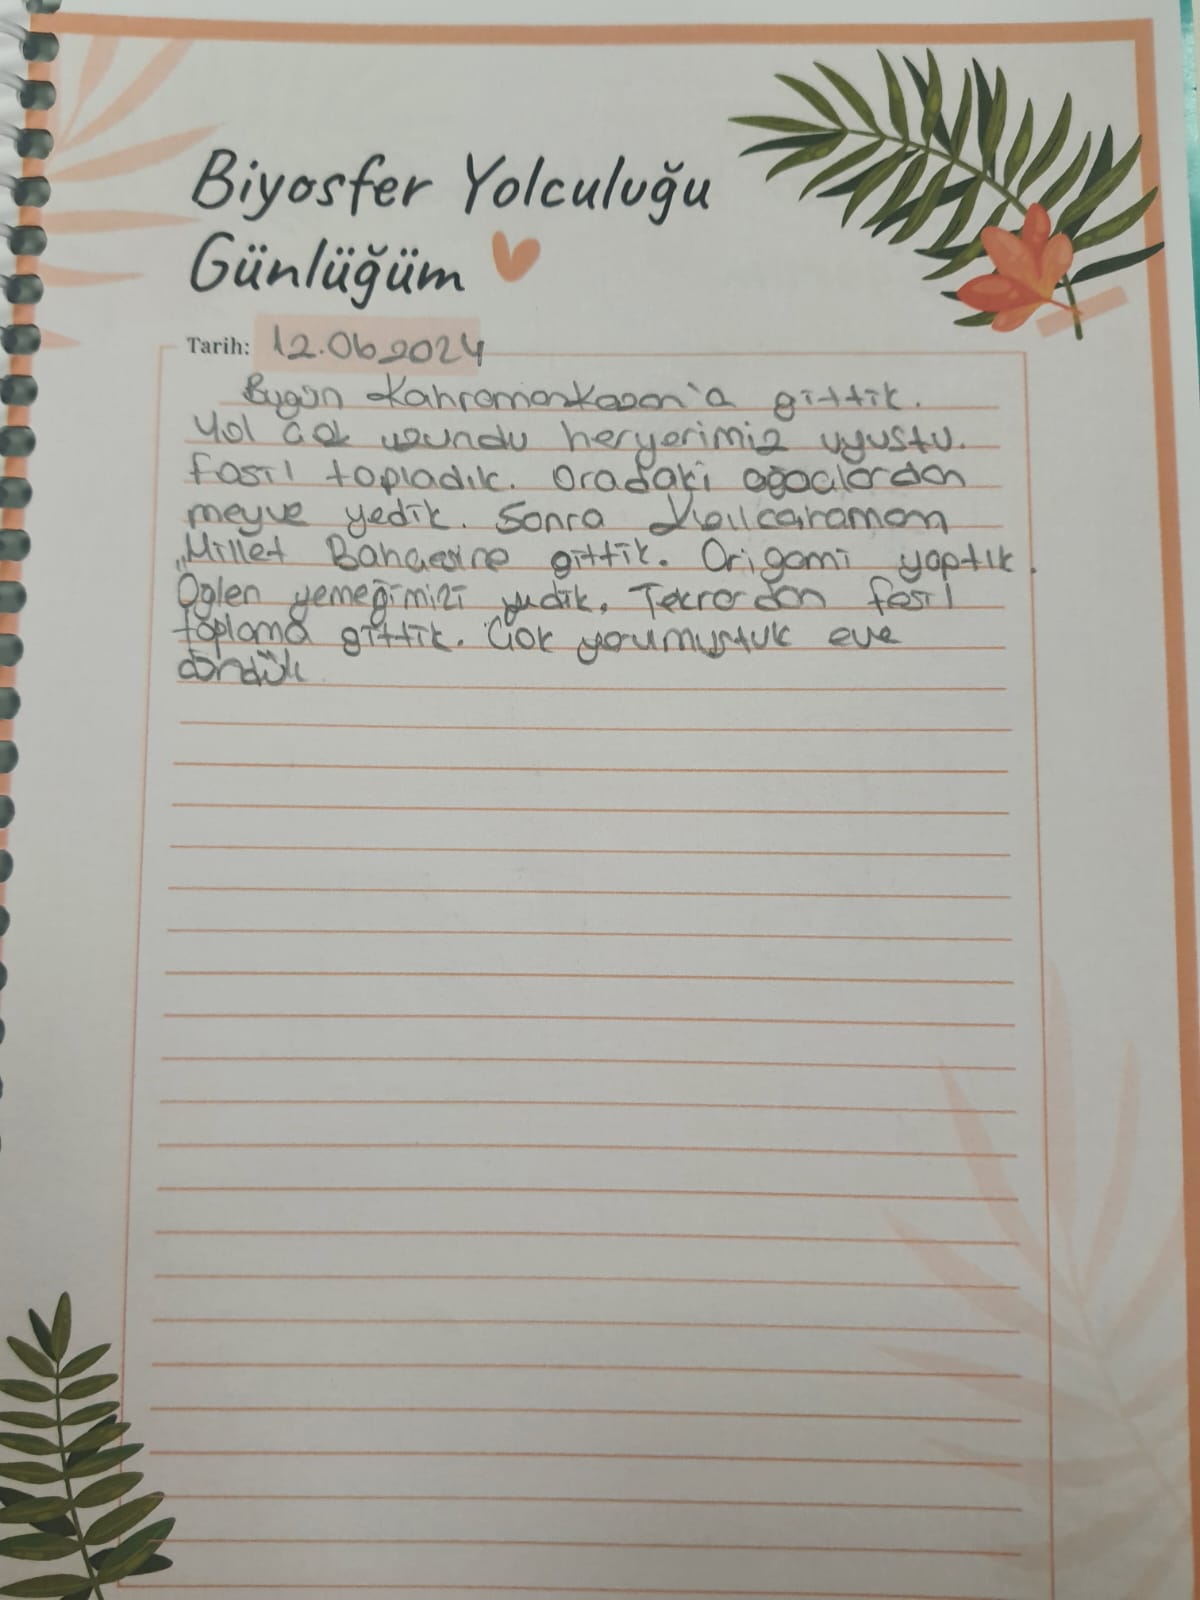 Biyosfer Yolculuğu
Günlüğüm
Tarih: 12.06.2024
Bugün Kahramankazan'a gittik.
Yol çok uzundu heryerimiz uyuştu.
fosil topladık. Oradaki ağaçlardan
meyve yedik. Sonra
Millet Bahçesine gittik. Origami yaptık.
Öğlen yemeğimizi yedik. Tekrardan fosil
toplama gittik. Çok yorumuştuk eve
döndük